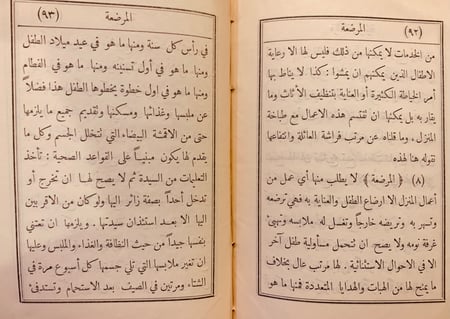 (٩٢) المرضعة
من الخدمات لا يمكنها من ذلك فليس لها الا رعاية
الاطفال الذين يمكنهم ان يمشوا: كذا لا يناط بها
أمر الخياطة الكثيرة أو العناية بتنظيف الأثاث وما
يقاربه بل يمكنها ان تقتسم هذه الاعمال مع طباخة
المنزل، وما قلناه عن مرتب فراشة العائلة وانتفاعها
نقوله هنا لهذه
(٨) (المرضعة) لا يطلب منها أي عمل من
أعمال المنزل الا ارضاع الطفل والعناية به فهي ترضعه
وتسهر به وتريضه خارجاً وتغسل له ملابسه وتهيئ
غرفة نومه ولا يصح ان تتحمل مسؤلية طفل آخر
الا في الاحوال الاستثنائية. لها مرتب عال بخلاف
ما يمنح لها من الهبات والهدايا المتعددة فمنها ما هو
المرضعة (٩٣)
في رأس كل سنة ومنها ما هو في عيد ميلاد الطفل
ومنها ما هو في أول تسنينه ومنها ما هو في الفطام
ومنها ما هو في اول خطوة يخطوها الطفل هذا فضلاً
عن ملبسها وغذائها ومسكنها وتقديم جميع ما يلزمها
حتى من الاقمشة البيضاء التي تتخلل الجسم وكل ما
يقدم لها يكون مبنياً على القواعد الصحية: تأخذ
التعليمات من السيدة ثم لا يصح لها ان تخرج أو
تدخل أحداً بصفة زائر اليها ولو كان من الاقربين
اليها الا بعد استئذان سيدتها. ويلزمها ان تعتني
بنفسها جيداً من حيث النظافة والغذاء والملبس وعليها
ان تغير ملابسها التي تلي جسمها كل أسبوع مرة في
الشتاء ومرتين في الصيف بعد الاستحمام وتستدفئ